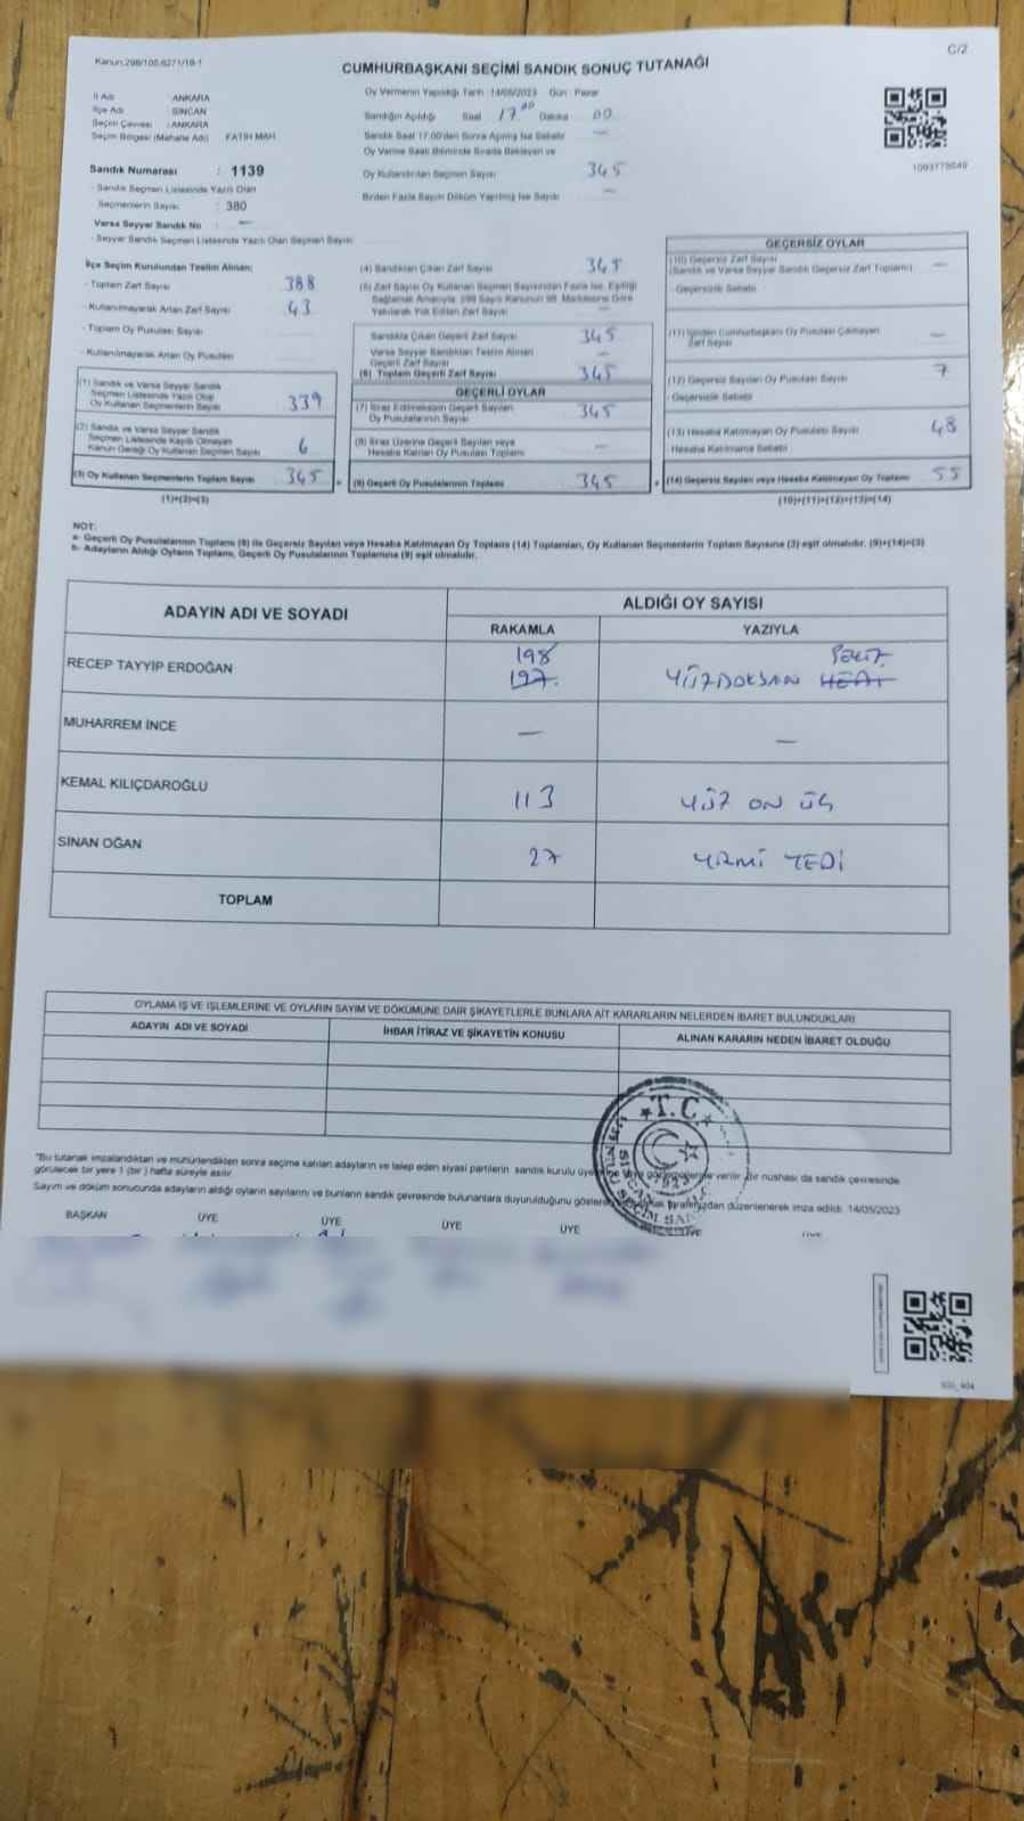 Kanun:298/105,6271/18-1
C/2
CUMHURBAŞKANI SEÇİMİ SANDIK SONUÇ TUTANAĞI
İl Adı : ANKARA
İlçe Adı : SİNCAN
Seçim Çevresi : ANKARA
Seçim Bölgesi (Mahalle Adı) FATİH MAH.
Sandık Numarası : 1139
- Sandık Seçmen Listesinde Yazılı Olan
Seçmenlerin Sayısı : 380
Varsa Seyyar Sandık No : —
- Seyyar Sandık Seçmen Listesinde Yazılı Olan Seçmen Sayısı
Oy Vermenin Yapıldığı Tarih 14/05/2023 Gün : Pazar
Sandığın Açıldığı Saat 17:00 Dakika : 00
Sandık Saat 17.00'den Sonra Açılmış İse Sebebi —
Oy Verme Saati Bitiminde Sırada Bekleyen ve
Oy Kullandırılan Seçmen Sayısı 345
Birden Fazla Sayım Döküm Yapılmış İse Sayısı —
İlçe Seçim Kurulundan Teslim Alınan;
- Toplam Zarf Sayısı 388
- Kullanılmayarak Artan Zarf Sayısı 43
- Toplam Oy Pusulası Sayısı
- Kullanılmayarak Artan Oy Pusulası
(1) Sandık ve Varsa Seyyar Sandık
Seçmen Listesinde Yazılı Olup
Oy Kullanan Seçmenlerin Sayısı 339
(2) Sandık ve Varsa Seyyar Sandık
Seçmen Listesinde Kayıtlı Olmayan
Kanun Gereği Oy Kullanan Seçmen Sayısı 6
(3) Oy Kullanan Seçmenlerin Toplam Sayısı 345
(1)+(2)=(3)
(4) Sandıktan Çıkan Zarf Sayısı 345
(5) Zarf Sayısı Oy Kullanan Seçmen Sayısından Fazla İse, Eşitliği
Sağlamak Amacıyla, 298 Sayılı Kanunun 98. Maddesine Göre
Yakılarak Yok Edilen Zarf Sayısı —
Sandıkta Çıkan Geçerli Zarf Sayısı 345
Varsa Seyyar Sandıktan Teslim Alınan
Geçerli Zarf Sayısı —
(6) Toplam Geçerli Zarf Sayısı 345
GEÇERLİ OYLAR
(7) İtiraz Edilmeksizin Geçerli Sayılan
Oy Pusulalarının Sayısı 345
(8) İtiraz Üzerine Geçerli Sayılan veya
Hesaba Katılan Oy Pusulası Toplamı —
(9) Geçerli Oy Pusulalarının Toplamı 345
GEÇERSİZ OYLAR
(10) Geçersiz Zarf Sayısı —
(Sandık ve Varsa Seyyar Sandık Geçersiz Zarf Toplamı)
- Geçersizlik Sebebi
(11) İçinden Cumhurbaşkanı Oy Pusulası Çıkmayan
Zarf Sayısı —
(12) Geçersiz Sayılan Oy Pusulası Sayısı 7
- Geçersizlik Sebebi
(13) Hesaba Katılmayan Oy Pusulası Sayısı 48
Hesaba Katılmama Sebebi
(14) Geçersiz Sayılan veya Hesaba Katılmayan Oy Toplamı 55
(10)+(11)+(12)+(13)=(14)
NOT:
a- Geçerli Oy Pusulalarının Toplamı (9) ile Geçersiz Sayılan veya Hesaba Katılmayan Oy Toplamı (14) Toplamları, Oy Kullanan Seçmenlerin Toplam Sayısına (3) eşit olmalıdır. (9)+(14)=(3)
b- Adayların Aldığı Oyların Toplamı, Geçerli Oy Pusulalarının Toplamına (9) eşit olmalıdır.
ADAYIN ADI VE SOYADI
ALDIĞI OY SAYISI
RAKAMLA YAZIYLA
RECEP TAYYİP ERDOĞAN 198 197. YÜZDOKSAN SEKİZ
MUHARREM İNCE — —
KEMAL KILIÇDAROĞLU 113 YÜZ ON ÜÇ
SİNAN OĞAN 27 YİRMİ YEDİ
TOPLAM
OYLAMA İŞ VE İŞLEMLERİNE VE OYLARIN SAYIM VE DÖKÜMÜNE DAİR ŞİKAYETLERLE BUNLARA AİT KARARLARIN NELERDEN İBARET BULUNDUKLARI
ADAYIN ADI VE SOYADI İHBAR İTİRAZ VE ŞİKAYETİN KONUSU ALINAN KARARIN NEDEN İBARET OLDUĞU
T.C.
"Bu tutanak imzalandıktan ve mühürlendikten sonra seçime katılan adayların ve talep eden siyasi partilerin sandık kurulu verilir. Bir nüshası da sandık çevresinde
görülecek bir yere 1 (bir) hafta süreyle asılır.
Sayım ve döküm sonucunda adayların aldığı oyların sayılarını ve bunların sandık çevresinde bulunanlara duyurulduğunu düzenlenerek imza edildi. 14/05/2023
BAŞKAN ÜYE ÜYE ÜYE ÜYE